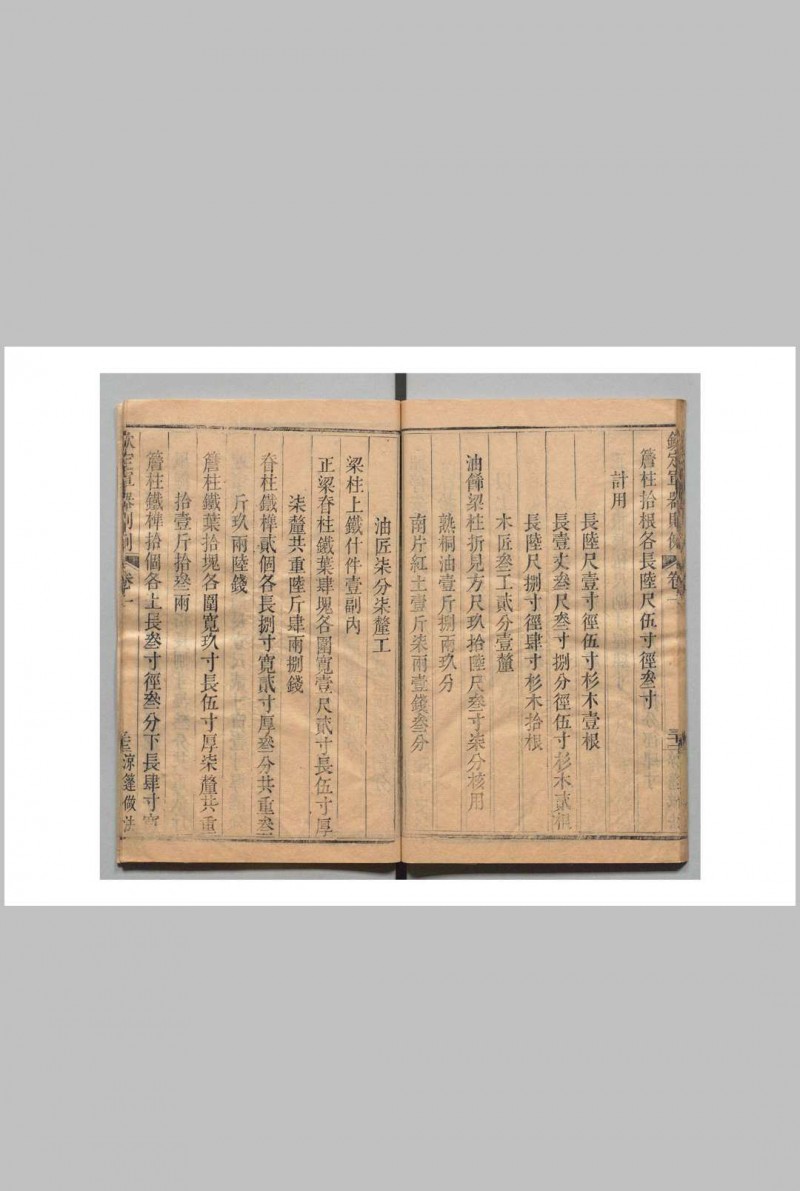 欽定軍器則例
卷一
簷柱拾根各長陸尺伍寸徑叁寸
計用
長陸尺壹寸徑伍寸杉木壹根
長壹丈叁尺叁寸捌分徑伍寸杉木貳根
長陸尺捌寸徑肆寸杉木拾根
木匠叁工貳分壹釐
油餙梁柱折見方尺玖拾陸尺叁寸柒分核用
熟桐油壹斤捌兩玖分
南片紅土壹斤柒兩壹錢叁分
油匠柒分柒釐工
梁柱上鐵什件壹副內
正梁脊柱鐵葉肆塊各圍寬壹尺貳寸長伍寸厚
柒釐共重陸斤肆兩捌錢
脊柱鐵榫貳個各長捌寸寬貳寸厚叁分共重叁
斤玖兩陸錢
簷柱鐵葉拾塊各圍寬玖寸長伍寸厚柒釐共重
拾壹斤拾叁兩
簷柱鐵榫拾個各上長叁寸徑叁分下長肆寸寬
欽定軍器則例
卷一
涼篷做法